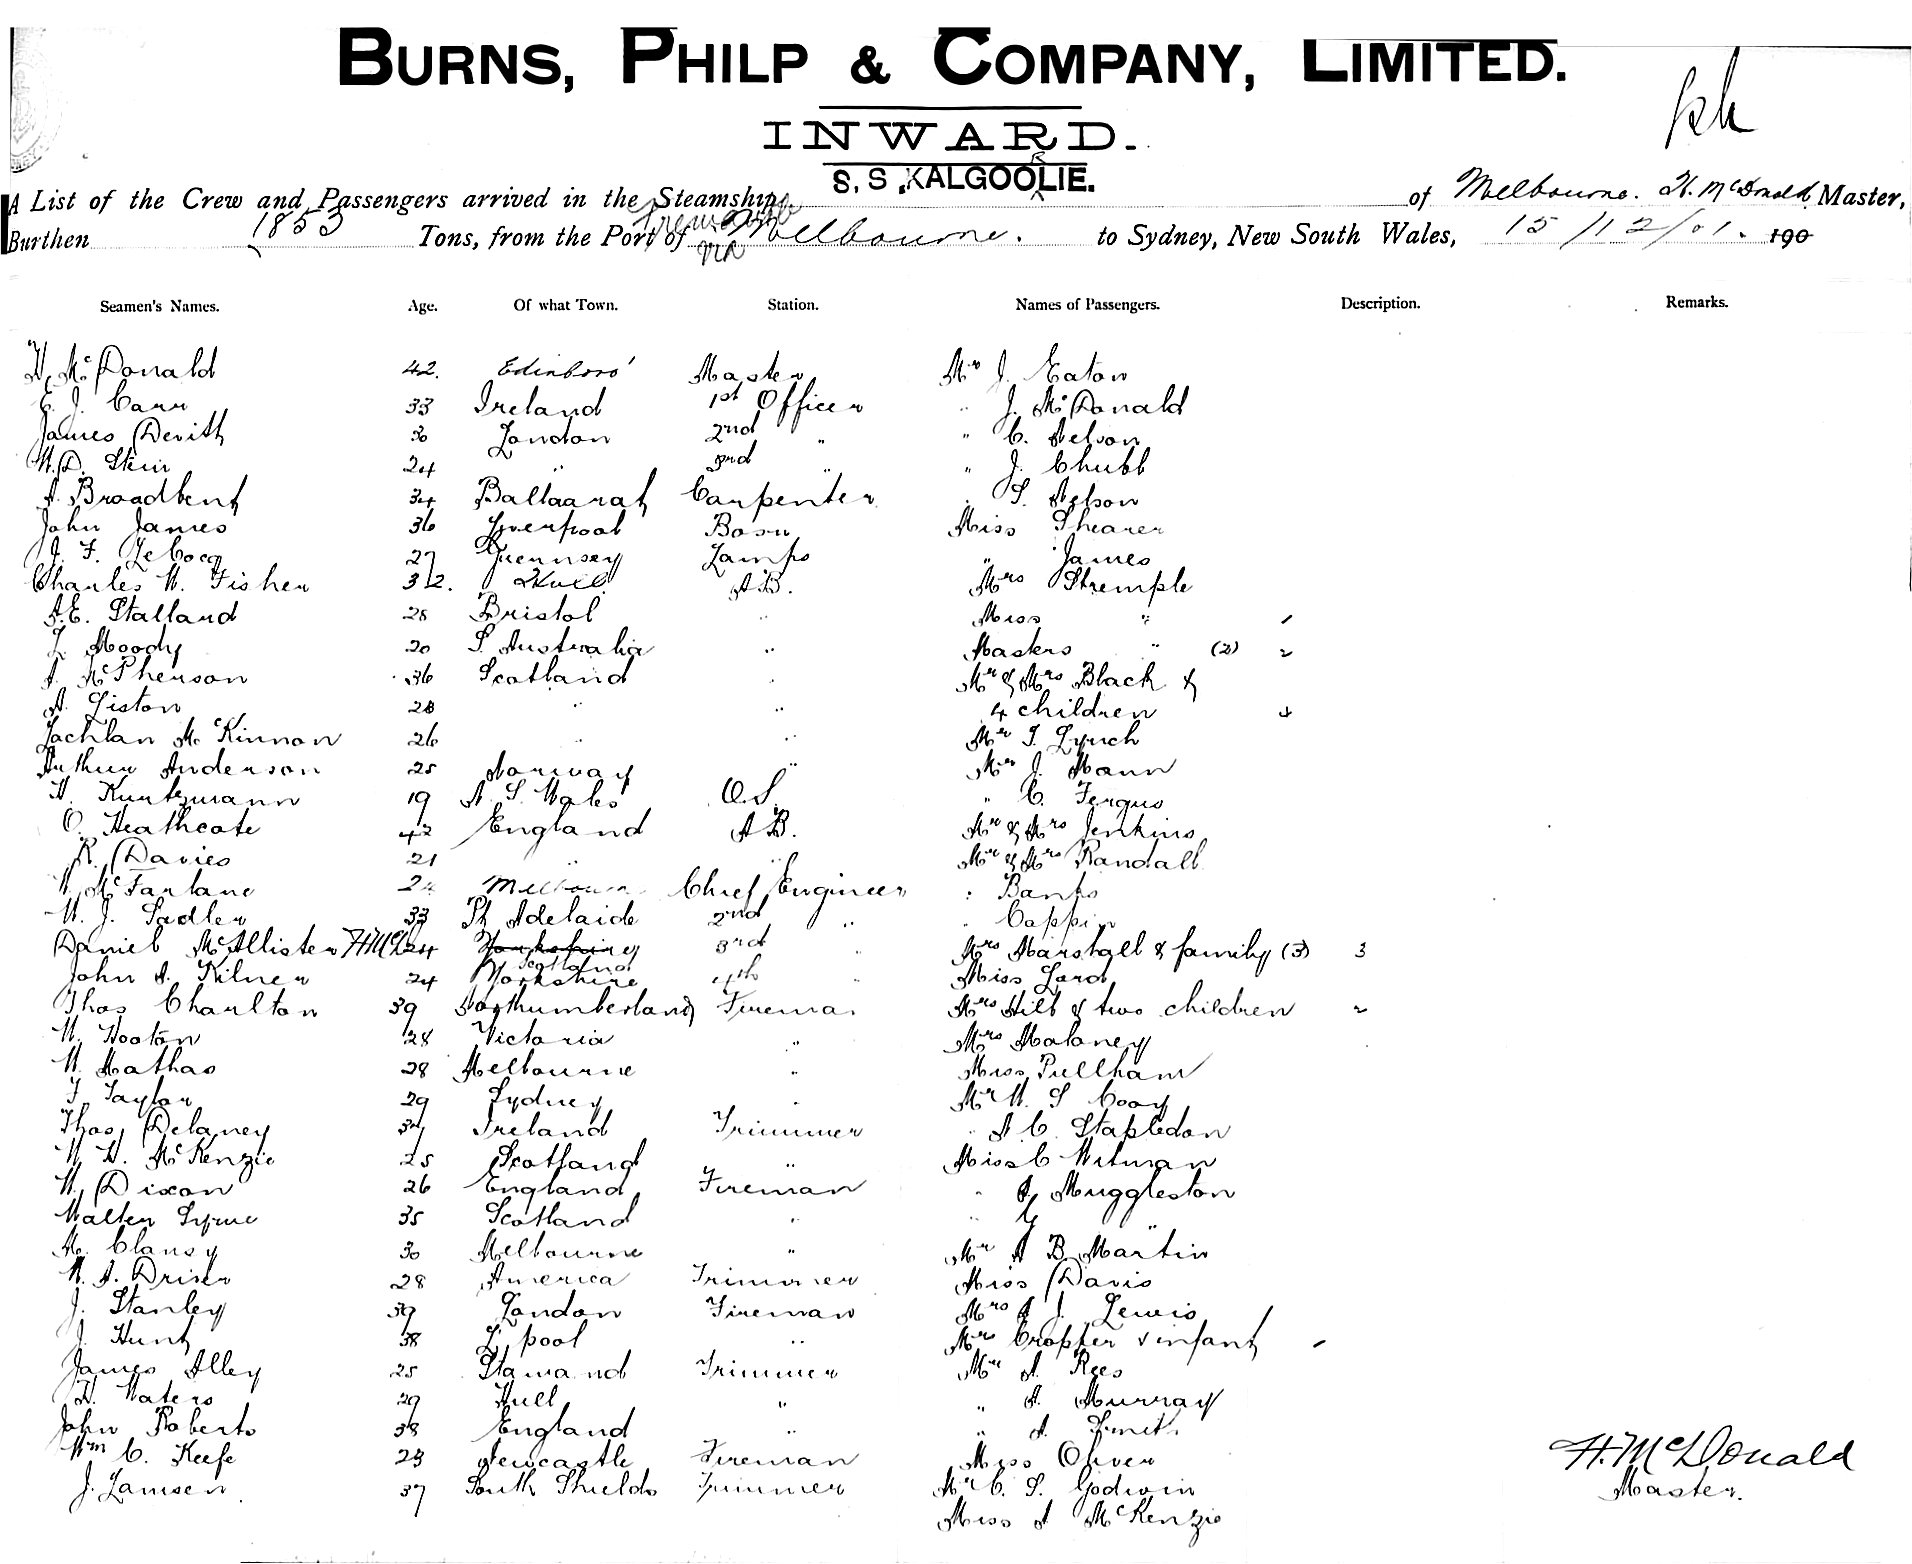 BURNS, PHILP & COMPANY, LIMITED.
INWARD.
S. S. KALGOORLIE.
A List of the Crew and Passengers arrived in the Steamship of Melbourne. H. McDonald Master,
Burthen 1853 Tons, from the Port of Fremantle via Melbourne. to Sydney, New South Wales, 15/12/01. 190
Seamen's Names. Age. Of what Town. Station. Names of Passengers. Description. Remarks.
H. McDonald 42. Edinboro' Master Mr J. Eaton
E. J. Carr 33 Ireland 1st Officer " J. McDonald
James Devith 30 London 2nd " " C. Nelson
W. D. Stein 24 " 3rd " " J. Chubb
A. Broadbent 34 Ballaarat Carpenter " S. Nelson
John James 36 Liverpool Bosn Miss Shearer
J. F. LeCocq 27 Guernsey Lamps " James
Charles W. Fisher 32. Hull A.B. Mrs Stremple
A.E. Stalland 28 Bristol " Miss "
L. Moody 20 S. Australia " Masters " (2) 2
A. McPherson 36 Scotland " Mr & Mrs Black &
A. Liston 28 " " 4 children 4
Lachlan McKinnon 26 " " Mr T. Lynch
Arthur Anderson 25 Norway " Mr J. Mann
H. Kuntzmann 19 N. S. Wales O.S. " C. Fergus
O. Heathcote 42 England A.B. Mr & Mrs Jenkins
R. Davies 21 " " Mr & Mrs Randall
W. McFarlane Melbourn Chief Engineer " Banks
W. J. Sadler 33 Pt Adelaide 2nd " " Cappin
Daniel McAllister 24 Scotland 3rd " Mrs Marshall & family (3) 3
John A. Kilner 24 Yorkshire 4th " Miss Lard
Thos Charlton 39 Northumberland Fireman Mrs Hill & two children 2
W. Hooton 28 Victoria " Mrs Maloney
W. Mathas 28 Melbourne " Miss Pullham
F. Taylor 29 Sydney " Mr W. S. Cooy
Thos. Delaney 37 Ireland Trimmer " A C. Stapledon
W. H. McKenzie 25 Scotland " Miss C Witman
W. Dixon 26 England Fireman " A Muggleston
Walter Lyme 35 Scotland " " "
M. Clansy 30 Melbourne " Mr A B. Martin
W. A. Driser 28 America Trimmer Miss Davis
J. Stanley 39 London Fireman Mrs A J. Lewis
J. Hunt 38 L'pool " Mrs Cropper & infant
James Alley 25 Trimmer Mr A. Rees
H. Waters 29 Hull " " A. Murray
John Roberts 38 England " " A. Smith
Wm C. Keefe 28 Newcastle Fireman Miss Oliver
J. Jamsen 37 South Shields Trimmer Mr C. S. Godwin
Miss A McKenzie
H. McDonald
Master.